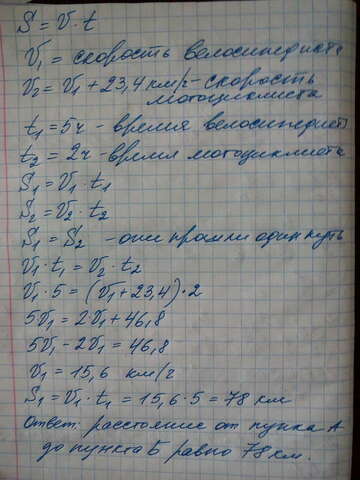 S = v · t
v₁ = скорость велосипедиста
v₂ = v₁ + 23,4 км/г - скорость
мотоциклиста
t₁ = 5ч - время велосипедист
t₂ = 2ч - время мотоциклиста
S₁ = v₁ · t₁
S₂ = v₂ · t₂
S₁ = S₂ - они прошли один путь
v₁ · t₁ = v₂ · t₂
v₁ · 5 = (v₁ + 23,4) · 2
5v₁ = 2v₁ + 46,8
5v₁ - 2v₁ = 46,8
v₁ = 15,6 км/г
S₁ = v₁ · t₁ = 15,6 · 5 = 78 км
Ответ: расстояние от пунка А
до пункта Б равно 78 км.